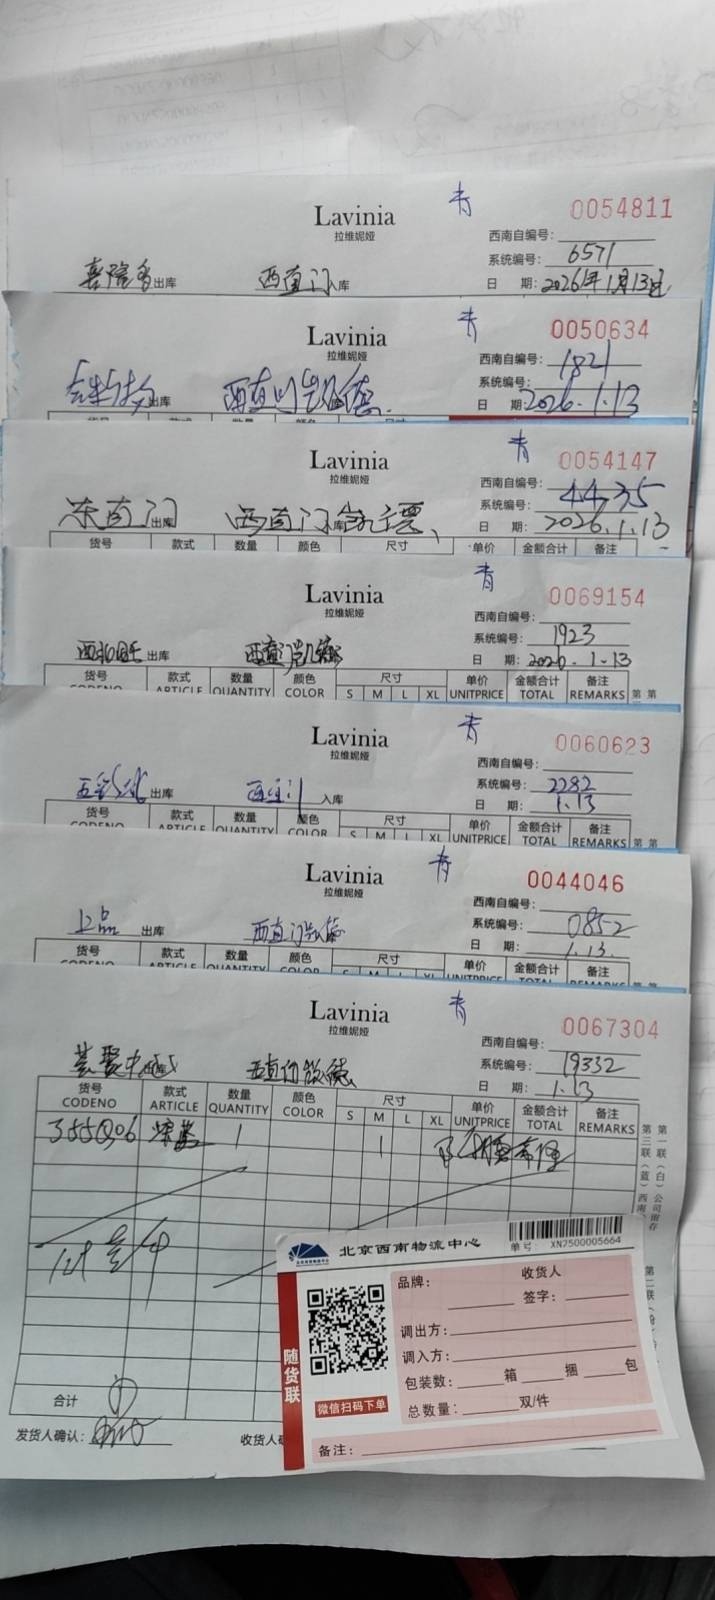 Lavinia
拉维妮娅
青
0054811
西南自编号:
系统编号: 6571
出库 西直门入库
日 期: 2026年1月13日
Lavinia
拉维妮娅
青
0050634
西南自编号:
系统编号: 1821
出库 西直门凯德
日 期: 2026.1.13
Lavinia
拉维妮娅
青
0054147
西南自编号:
系统编号: 4435
东直门出库 西直门
日 期: 2026.1.13
货号 款式 数量 颜色 尺寸 单价 金额合计 备注
Lavinia
拉维妮娅
青
0069154
西南自编号:
系统编号: 1923
西北旺 出库 西直门凯德
日 期: 2026.1.13
货号 款式 数量 颜色 尺寸 单价 金额合计 备注
CODENO ARTICLE QUANTITY COLOR S M L XL UNITPRICE TOTAL REMARKS
Lavinia
拉维妮娅
青
0060623
西南自编号:
系统编号: 2282
五彩城 出库 西直门 入库
日 期: 1.13
货号 款式 数量 颜色 尺寸 单价 金额合计 备注
CODENO ARTICLE QUANTITY COLOR S M L XL UNITPRICE TOTAL REMARKS
Lavinia
拉维妮娅
青
0044046
西南自编号:
系统编号: 0852
上品 出库 西直门凯德
日 期: 1.13.
货号 款式 数量 颜色 尺寸 单价 金额合计 备注
CODENO ARTICLE QUANTITY COLOR S M L XL UNITPRICE TOTAL REMARKS
Lavinia
拉维妮娅
青
0067304
西南自编号:
系统编号: 19332
荟聚 西直门凯德
日 期: 1.13
货号 款式 数量 颜色 尺寸 单价 金额合计 备注
CODENO ARTICLE QUANTITY COLOR S M L XL UNITPRICE TOTAL REMARKS
1 1
合计 ①
发货人确认:
收货人
第一联(白)公司留存
第三联(蓝)西南
北京西南物流中心
单号: XN2500005664
随货联
微信扫码下单
品牌: 收货人
签字:
调出方:
调入方:
包装数: 箱 捆 包
总数量: 双/件
备注: